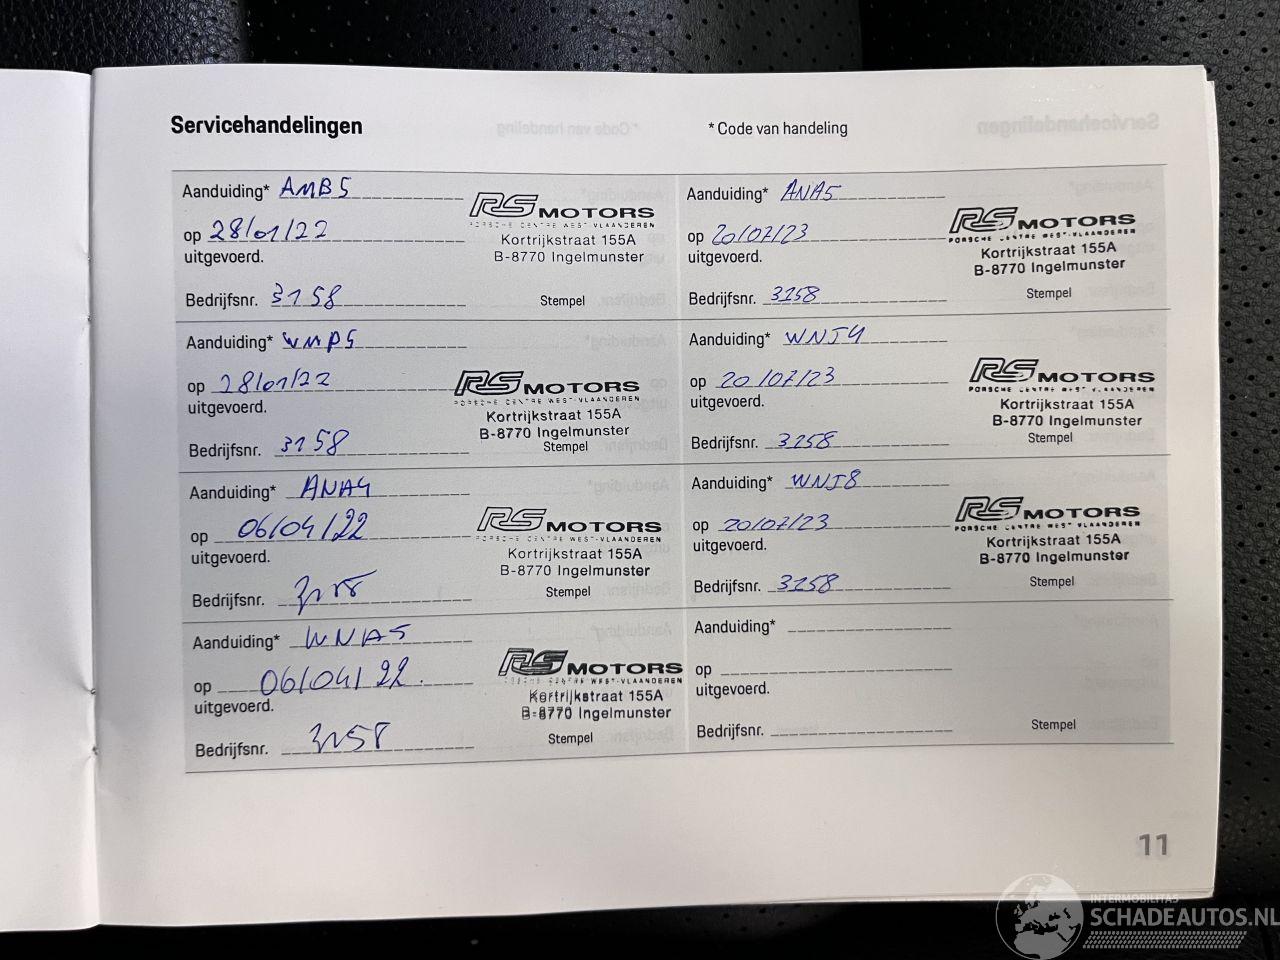 Servicehandelingen
* Code van handeling
Aanduiding* AMB5
op 28/01/22
uitgevoerd.
Bedrijfsnr. 3158
RS MOTORS
PORSCHE CENTRE WEST-VLAANDEREN
Kortrijkstraat 155A
B-8770 Ingelmunster
Stempel
Aanduiding* WMP5
op 28/01/22
uitgevoerd.
Bedrijfsnr. 3158
RS MOTORS
PORSCHE CENTRE WEST-VLAANDEREN
Kortrijkstraat 155A
B-8770 Ingelmunster
Stempel
Aanduiding* ANA4
op 06/04/22
uitgevoerd.
Bedrijfsnr. 3158
RS MOTORS
PORSCHE CENTRE WEST-VLAANDEREN
Kortrijkstraat 155A
B-8770 Ingelmunster
Stempel
Aanduiding* WNA5
op 06/04/22.
uitgevoerd.
Bedrijfsnr. 3158
RS MOTORS
PORSCHE CENTRE WEST-VLAANDEREN
Kortrijkstraat 155A
B-8770 Ingelmunster
Stempel
Aanduiding* ANA5
op 20/07/23
uitgevoerd.
Bedrijfsnr. 3158
RS MOTORS
PORSCHE CENTRE WEST-VLAANDEREN
Kortrijkstraat 155A
B-8770 Ingelmunster
Stempel
Aanduiding* WNI4
op 20/07/23
uitgevoerd.
Bedrijfsnr. 3158
RS MOTORS
PORSCHE CENTRE WEST-VLAANDEREN
Kortrijkstraat 155A
B-8770 Ingelmunster
Stempel
Aanduiding* WNI8
op 20/07/23
uitgevoerd.
Bedrijfsnr. 3158
RS MOTORS
PORSCHE CENTRE WEST-VLAANDEREN
Kortrijkstraat 155A
B-8770 Ingelmunster
Stempel
Aanduiding*
op
uitgevoerd.
Bedrijfsnr.
Stempel
11
INTERMOBILITAS
SCHADEAUTOS.NL